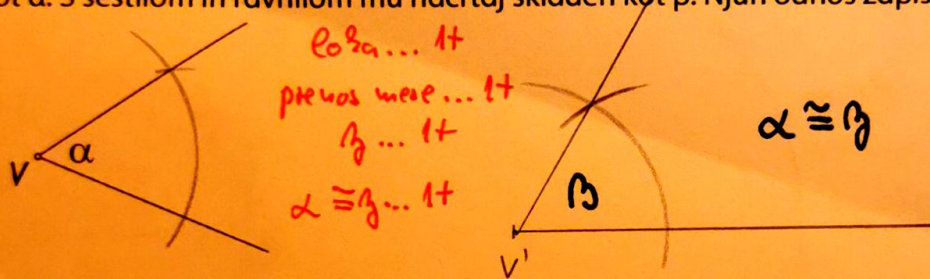 kot α. S šestilom in ravnilom mu načrtaj skladen kot β. Njun odnos zapiši
loka... 1t
prenos mere... 1t
β... 1t
α ≅ β... 1t
V α
V' β
α ≅ β